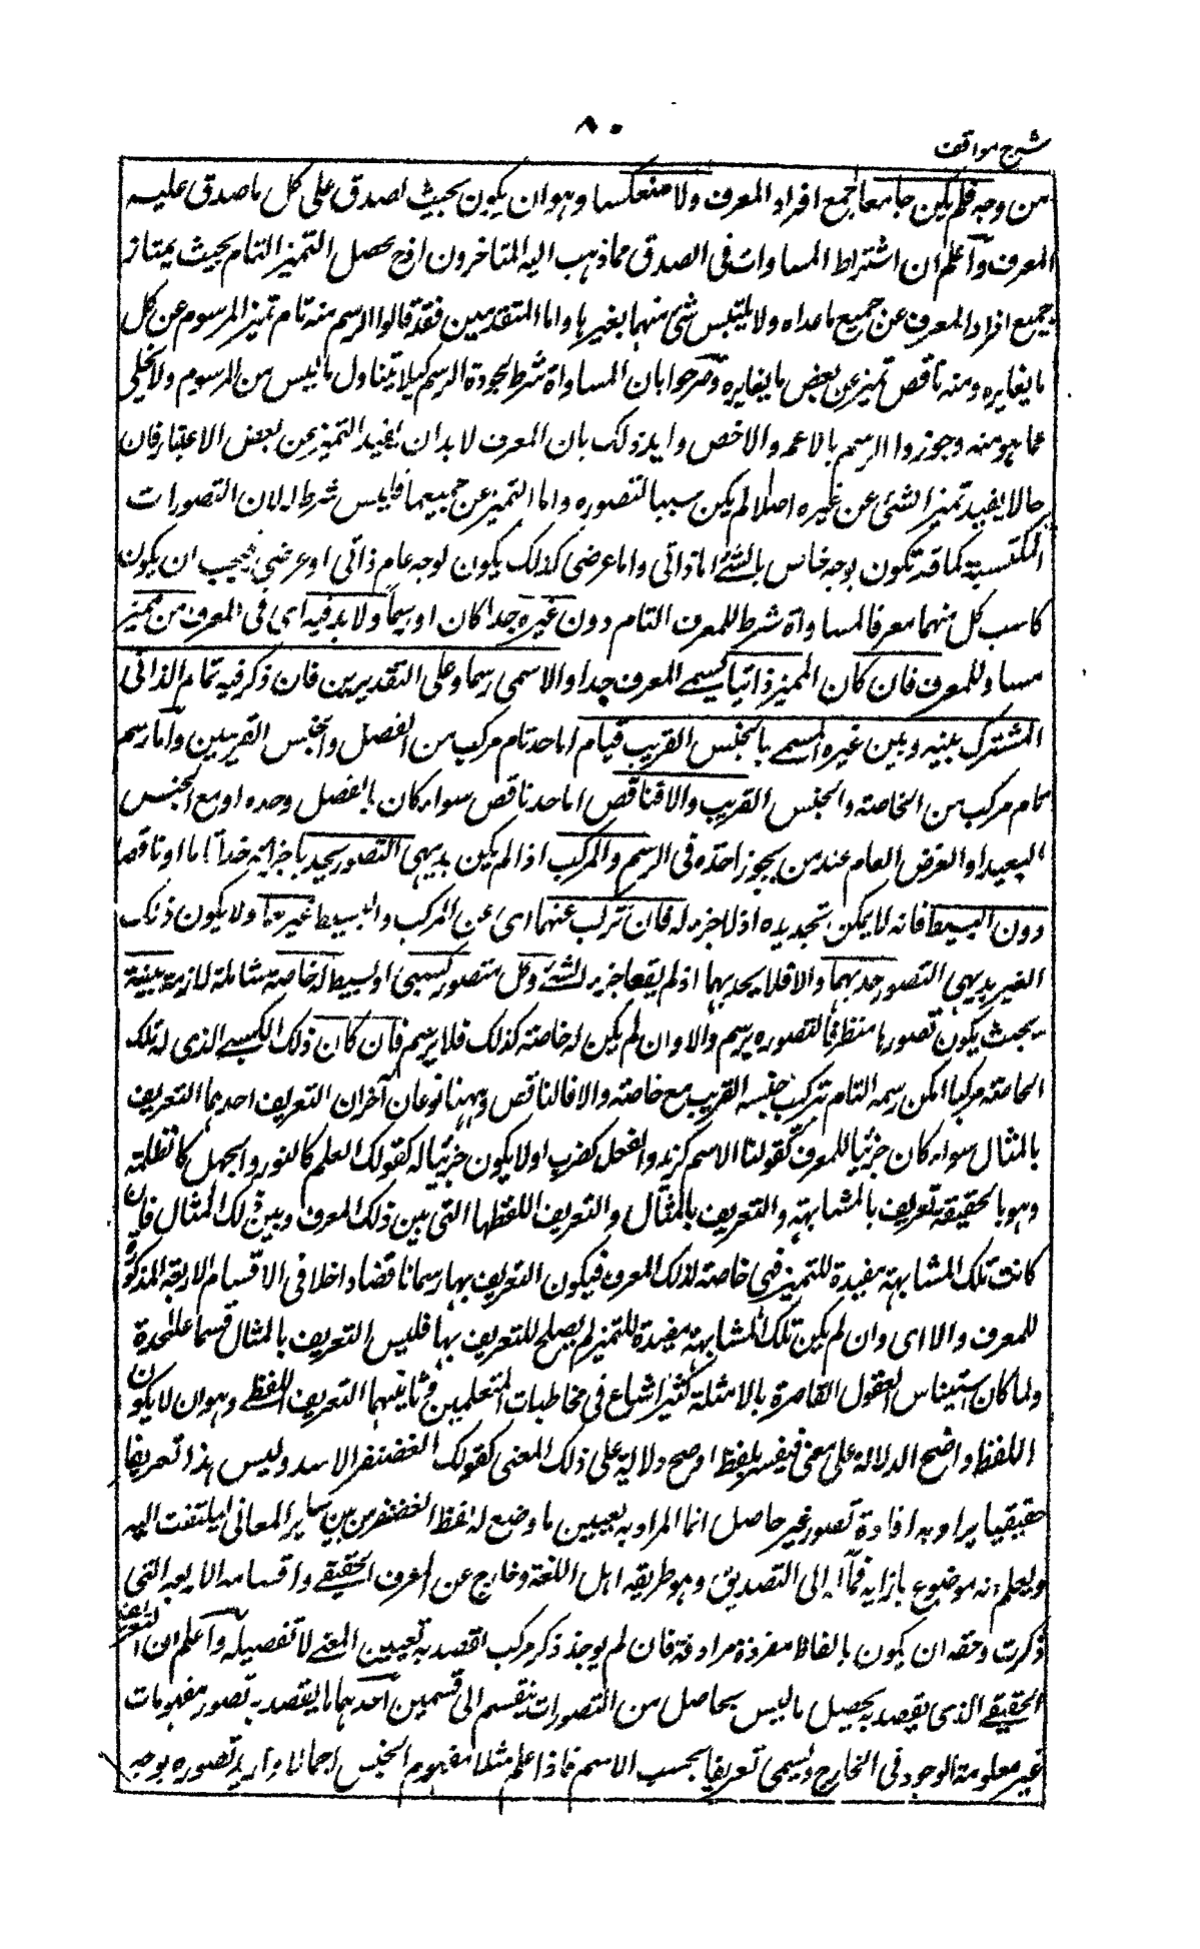 ٨٠
شرح مواقف
من وجه فلم يكن جامعا لجميع افراد المعرف ولا منعكسا وهو ان يكون بحيث يصدق على كل ما صدق عليه
المعرف واعلم ان اشتراط المساوات فى الصدق مما ذهب اليه المتاخرون اذ ح يحصل التميز التام بحيث يمتاز
جميع افراد المعرف عن جميع ما عداه ولا يلتبس شئ منهما بغيرها واما المتقدمين فقد قالوا الرسم منه تام تميز المرسوم عن كل
ما يغايره ومنه ناقص تميز عن بعض ما يغايره وصرحوا بان المساواة شرط لجودة الرسم كيلا يتناول ما ليس من المرسوم ولا يخلى
عما هو منه وجوزوا الرسم بالاعم والاخص وايد ذلك بان المعرف لابد ان يفيد التميز عن بعض الاغيار فان
حالا يفيد تميز الشئ عن غيره اصلا لم يكن سببا لتصوره واما التميز عن جميعها فليس شرطا له لان التصورات
المكتسبة كما قد تكون بوجه خاص بالشئ اما ذاتى واما عرضى كذلك يكون لوجه عام ذاتى او عرضى فيجب ان يكون
كاسب كل منهما معرفا فالمساواة شرط للمعرف التام دون غيره حدا كان او رسما ولابد فيه اى فى المعرف من مميز
مساو للمعرف فان كان المميز ذاتيا يسمى المعرف حدا والا سمى رسما وعلى التقديرين فان ذكر فيه تمام الذاتى
المشترك بينه وبين غيره المسمى بالجنس القريب فتام اما حد تام مركب من الفصل والجنس القريبين واما رسم
تام مركب من الخاصة والجنس القريب والا فناقص اما حد ناقص سواء كان بالفصل وحده او مع الجنس
البعيد او العرض العام عند من يجوز اخذه فى الرسم والمركب اذا لم يكن بديهى التصور يحد باجزائه حدا تاما او ناقصا
دون البسيط فانه لا يمكن تحديده اذ لا جزء له فان تركب عنهما اى عن المركب والبسيط غيرهما ولا يكون ذلك
الغير بديهى التصور حد بهما والا فلا يحد بهما اذ لم يقعا جزء الشئ وكل متصور كسبى او بسيط له خاصة شاملة لازمة بينة
بحيث يكون تصورها منتظر فالتصوره يرسم والا وان لم يكن له خاصة كذلك فلا يرسم فان كان ذلك الكسبى الذى له تلك
الخاصة مركبا امكن رسمه التام تركب جنسه القريب مع خاصته والا فالناقص وههنا نوعان آخران التعريف احدهما التعريف
بالمثال سواء كان جزئيا للمعرف كقولنا الاسم كزيد والفعل كضرب او لا يكون جزئيا له كقولك العلم كالنور والجهل كالظلمة
وهو بالحقيقة تعريف بالمشابهة والتعريف بالمثال والتعريف اللفظها التى بين ذلك المعرف وبين ذلك المثال فان
كانت تلك المشابهة مفيدة للتميز فهى خاصة لذلك المعرف فيكون التعريف بها رسما ناقصا داخلا فى الاقسام الاربعة المذكورة
للمعرف والا اى وان لم يكن تلك المشابهة مفيدة للتميز لم يصلح للتعريف بها فليس التعريف بالمثال قسما على حدة
ولما كان استيناس العقول القاصرة بالامثلة كثيرا شاع فى مخاطبات المتعلمين وثانيهما التعريف اللفظى وهو ان لا يكون
اللفظ واضح الدلالة على معنى فيفسر بلفظ اوضح دلالة على ذلك المعنى كقولك الغضنفر الاسد وليس هذا تعريفا
حقيقيا يراد به افادة تصور غير حاصل انما المراد به تعيين ما وضع له لفظ الغضنفر من بين ساير المعانى ليلتفت اليه
وليعلم انه موضوع بازايه فمآله الى التصديق وهو طريقه اهل اللغة وخارج عن المعرف الحقيقى واقسامه الاربعة التى
ذكرت وحقه ان يكون بالفاظ مفردة مرادفة فان لم يوجد ذكر مركب يقصد به تعيين المعنى لا تفصيله واعلم ان التعريف
الحقيقى الذى يقصد به تحصيل ما ليس بحاصل من التصورات ينقسم الى قسمين احدهما ما يقصد به تصور مفهومات
غير معلومة الوجود فى الخارج ويسمى تعريفا بحسب الاسم فاذا علم مثلا مفهوم الجنس اجمالا واريد تصوره بوجه